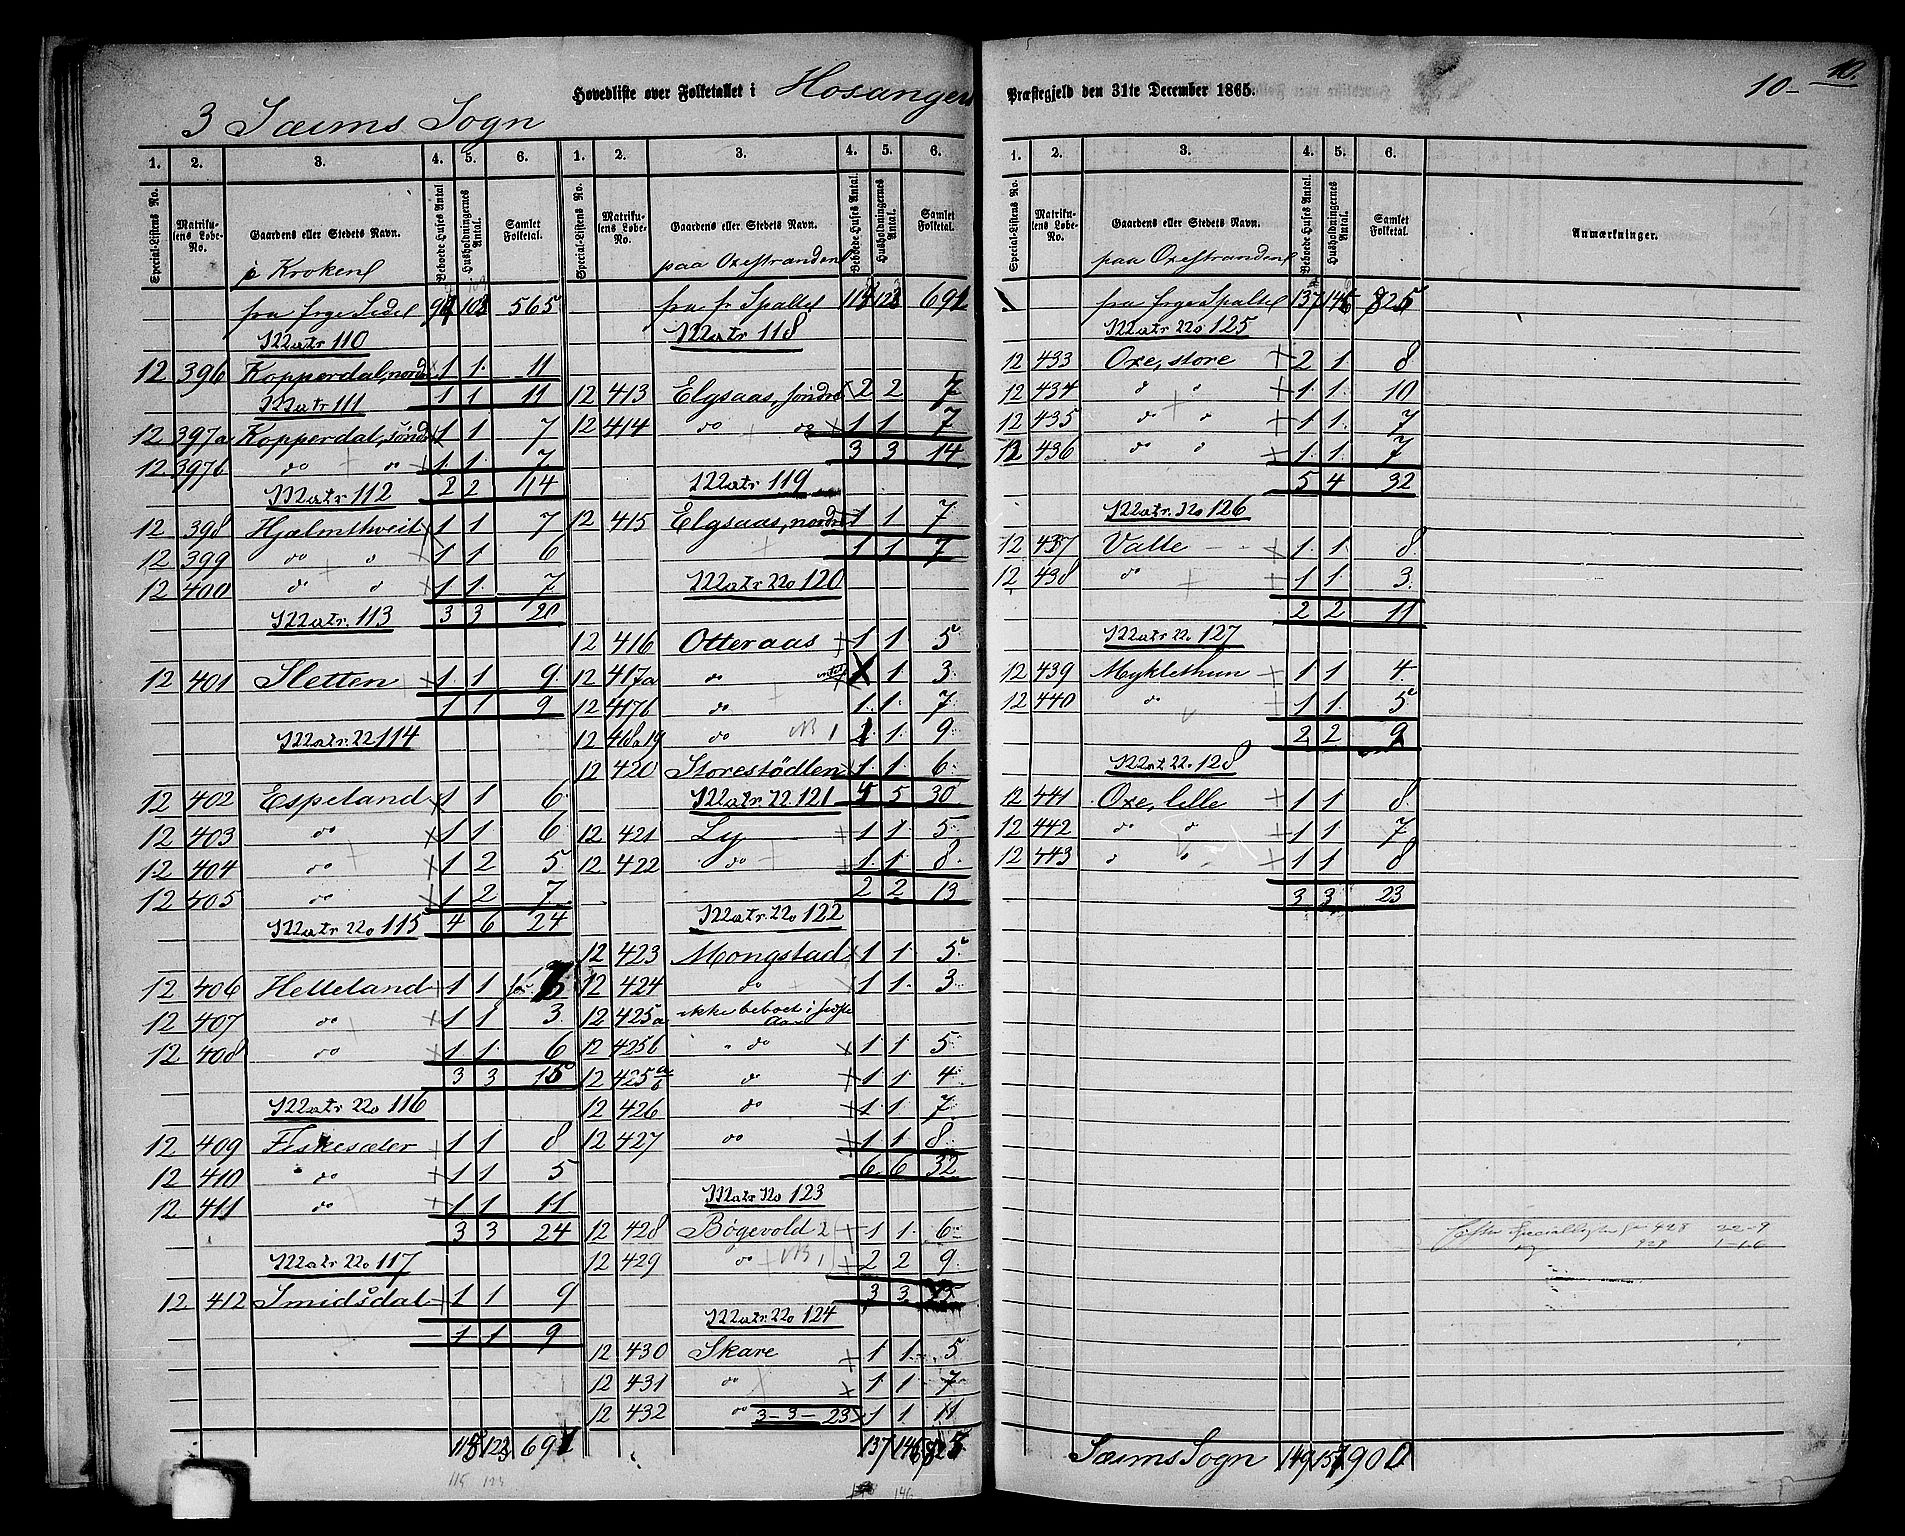 3 Sæims Sogn
Hovedliste over Folketallet i Hosangers Præstegjeld den 31te December 1865.
10- 10.
1. 2. 3. 4. 5. 6.
Special-Listens No. Matrikulens Løbe-No. Gaardens eller Stedets Navn. Beboede Huses Antal Husholdningernes Antal. Samlet Folketal.
i Kroken
fra frge Sedel 565
Matr 110
12 396 Kopperdal, nordr 1 1 11
1 1 11
Matr 111
12 397a Kopperdal, søndr 1 1 7
12 397b do do 1 1 7
2 2 14
Matr 112
12 398 Hjælmthveit 1 1 7
12 399 do d 1 1 6
12 400 do d 1 1 7
3 3 20
Matr. 113
12 401 Sletten 1 1 9
1 1 9
Matr. N 114
12 402 Espeland 1 1 6
12 403 do 1 1 6
12 404 do 1 2 5
12 405 do 1 2 7
4 6 24
Matr No 115
12 406 Helleland 1 1
12 407 do 1 1 3
12 408 do 1 1 6
3 3 15
Matr No 116
12 409 Fiskesæter 1 1 8
12 410 do 1 1 5
12 411 do 1 1 11
3 3 24
Matr No 117
12 412 Smidsdal 1 1 9
1 1 9
118 123 691
115 123
1. 2. 3. 4. 5. 6.
Special-Listens No. Matrikulens Løbe-No. Gaardens eller Stedets Navn. Beboede Huses Antal. Husholdningernes Antal. Samlet Folketal.
paa Oxestranden
fra fr Spalte 691
Matr 118
12 413 Elgsaas, søndre 2 2 7
12 414 do do 1 1 7
3 3 14
Matr 119
12 415 Elgsaas, nordre 1 1 7
1 1 7
Matr No 120
12 416 Otteraas 1 1 5
12 417a do 1 1 3
12 417b do 1 1 7
12 418a19 do NB 1 1 1 9
12 420 Storestødlen 1 1 6
5 5 30
Matr. N. 121
12 421 Ly 1 1 5
12 422 do 1 1 8
2 2 13
Matr. No 122
12 423 Mongstad 1 1 5
12 424 do 1 1 3
12 425a ikke beboet i sidste Aar
12 425b do 1 1 5
12 425 do 1 1 4
12 426 do 1 1 7
12 427 do 1 1 8
6 6 32
Matr No 123
12 428 Bøgevold 2 1 1 6
12 429 do NB 1 2 2 9
3 3 15
Matr No 124
12 430 Skare 1 1 5
12 431 do 1 1 7
12 432 do 1 1 11
3-3-23
137 146 825
146
1. 2. 3. 4. 5. 6.
Special-Listens No. Matrikulens Løbe-No. Gaardens eller Stedets Navn. Beboede Huses Antal. Husholdningernes Antal. Samlet Folketal. Anmærkninger.
paa Oxestranden
fra frge Spalte 137 146 825
Matr No 125
12 433 Oxe, store 2 1 8
12 434 d d 1 1 10
12 435 do d 1 1 7
12 436 do d 1 1 7
5 4 32
Matr. No 126
12 437 Valle 1 1 8
12 438 do 1 1 3
2 2 11
Matr N. 127
12 439 Myklethun 1 1 4
12 440 do 1 1 5
2 2 9
Matr N. 128
12 441 Oxe, lille 1 1 8
12 442 do d 1 1 7
12 443 d d 1 1 8
3 3 23
Efter Speciallisten 428 2-2-9
429 1-1-6
Sæims Sogn 149 157 900